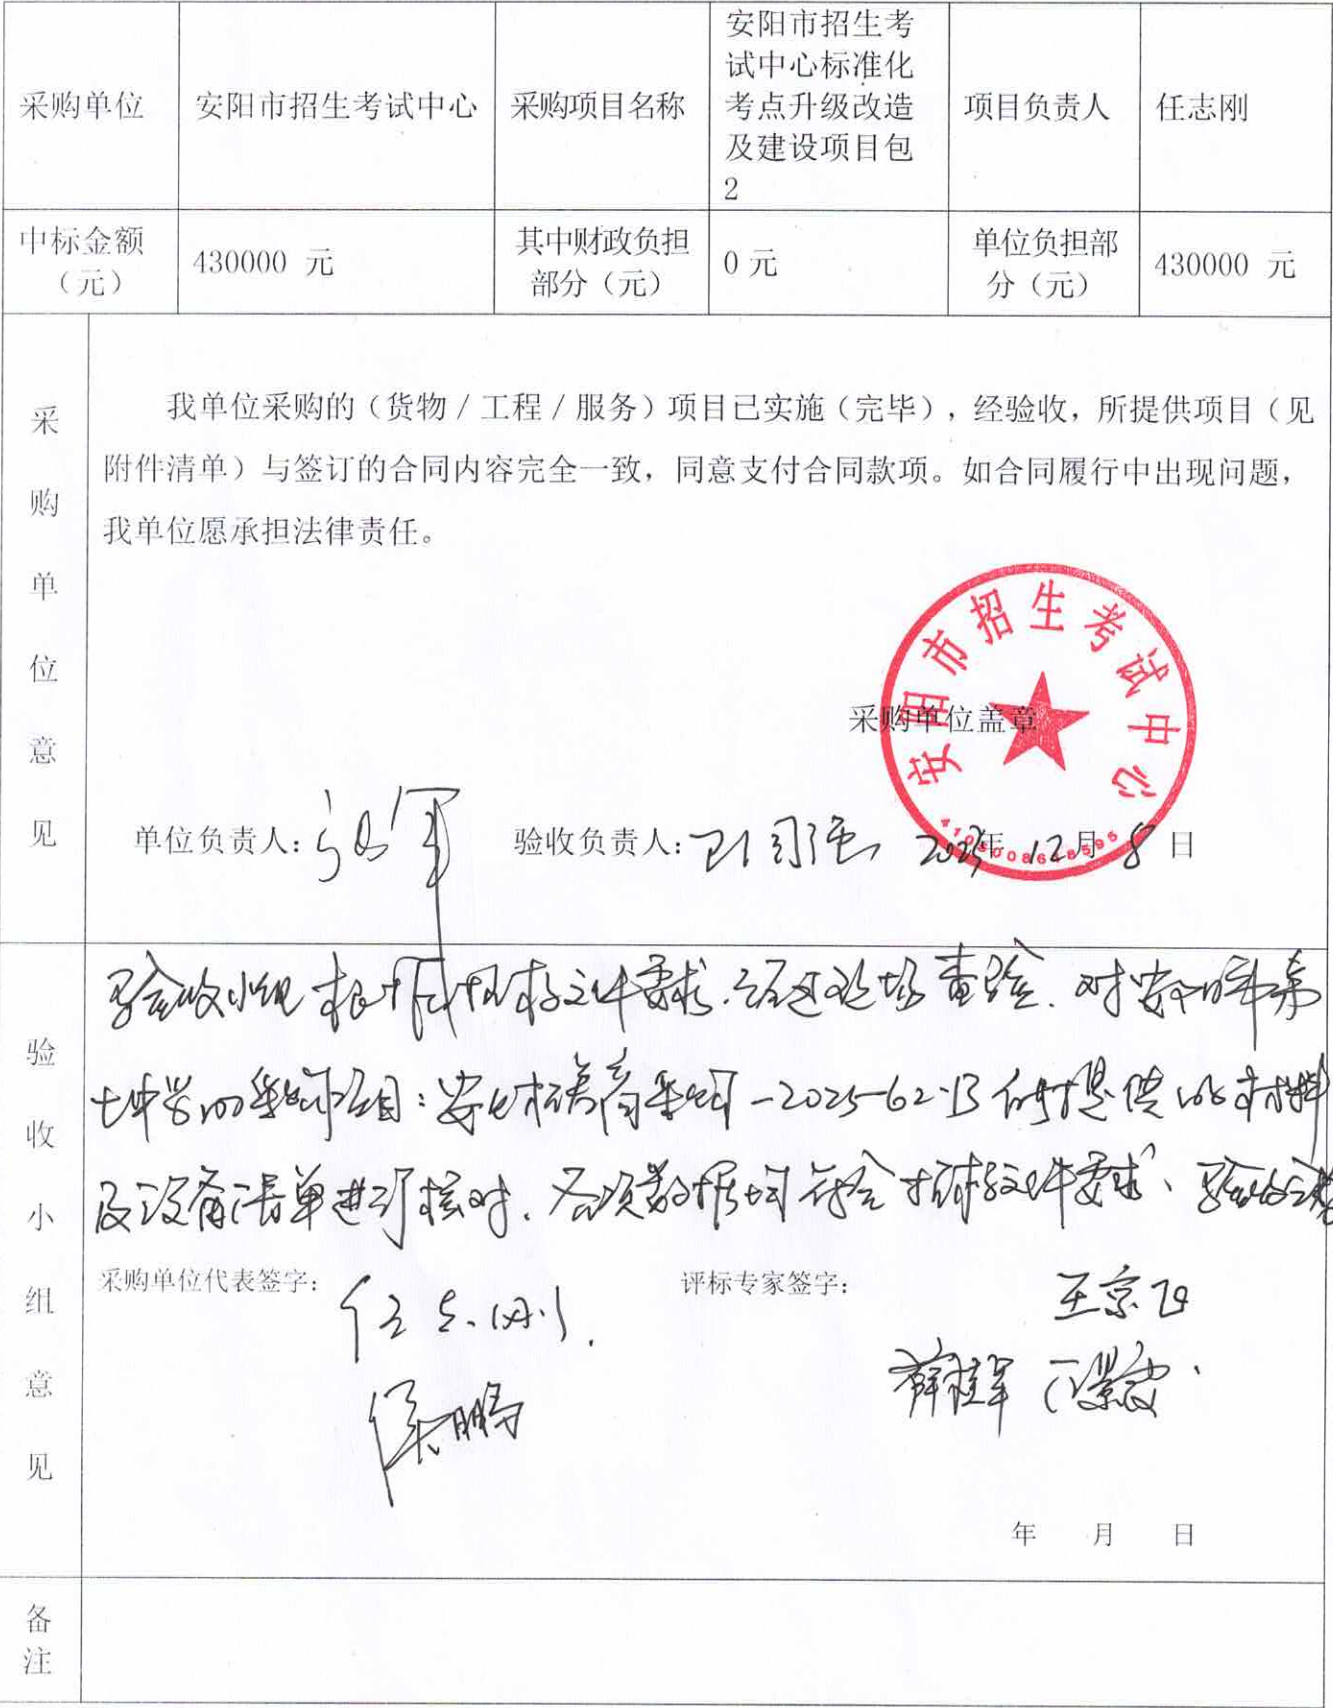 采购单位
安阳市招生考试中心
采购项目名称
安阳市招生考
试中心标准化
考点升级改造
及建设项目包
2
项目负责人
任志刚
中标金额
（元）
430000 元
其中财政负担
部分（元）
0 元
单位负担部
分（元）
430000 元
采购单位意见
我单位采购的（货物／工程／服务）项目已实施（完毕），经验收，所提供项目（见
附件清单）与签订的合同内容完全一致，同意支付合同款项。如合同履行中出现问题，
我单位愿承担法律责任。
安阳市招生考试中心
采购单位盖章
单位负责人：
验收负责人：
年 12 月 8 日
验收小组意见
验收小组根据招标文件要求，经过现场查验，对安阳市第
七中学的采购项目：采购-2025-62-B 所提供的材料
及设备清单进行核对，各项数据均符合招标文件要求、验收合格
采购单位代表签字：
任志刚
侯鹏
评标专家签字：
王京
薛桂军
年 月 日
备注